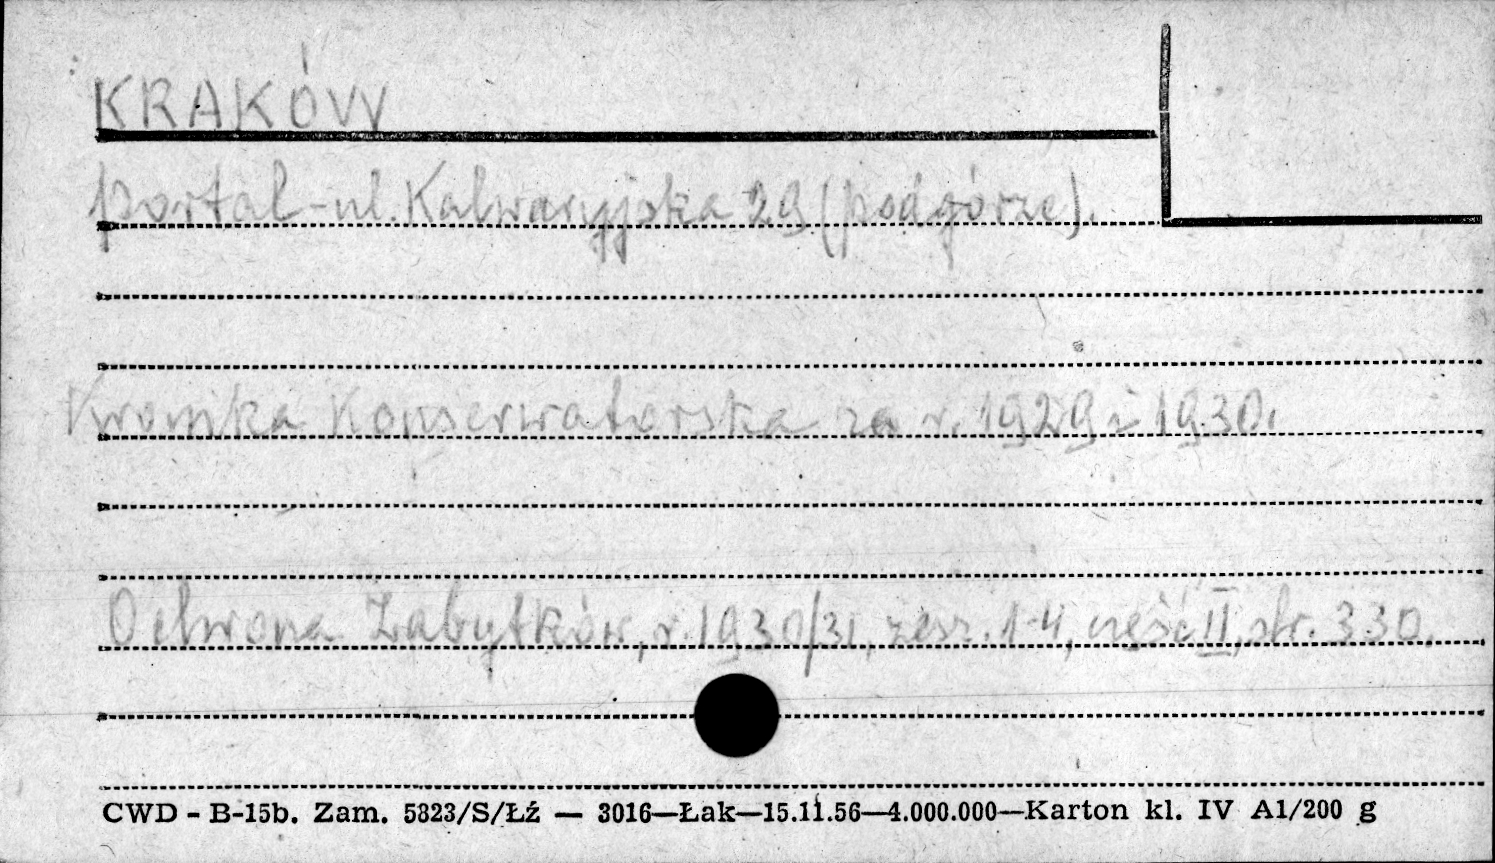 KRAKÓW
portal - ul. Kalwaryjska 29 (podgórze).
Kronika Konserwatorska za r. 1929 i 1930.
Ochrona Zabytków, r. 1930/31, zesz. 1-4, część II, str. 330.
CWD - B-15b. Zam. 5823/S/Łź — 3016—Łak—15.11.56—4.000.000—Karton kl. IV A1/200 g